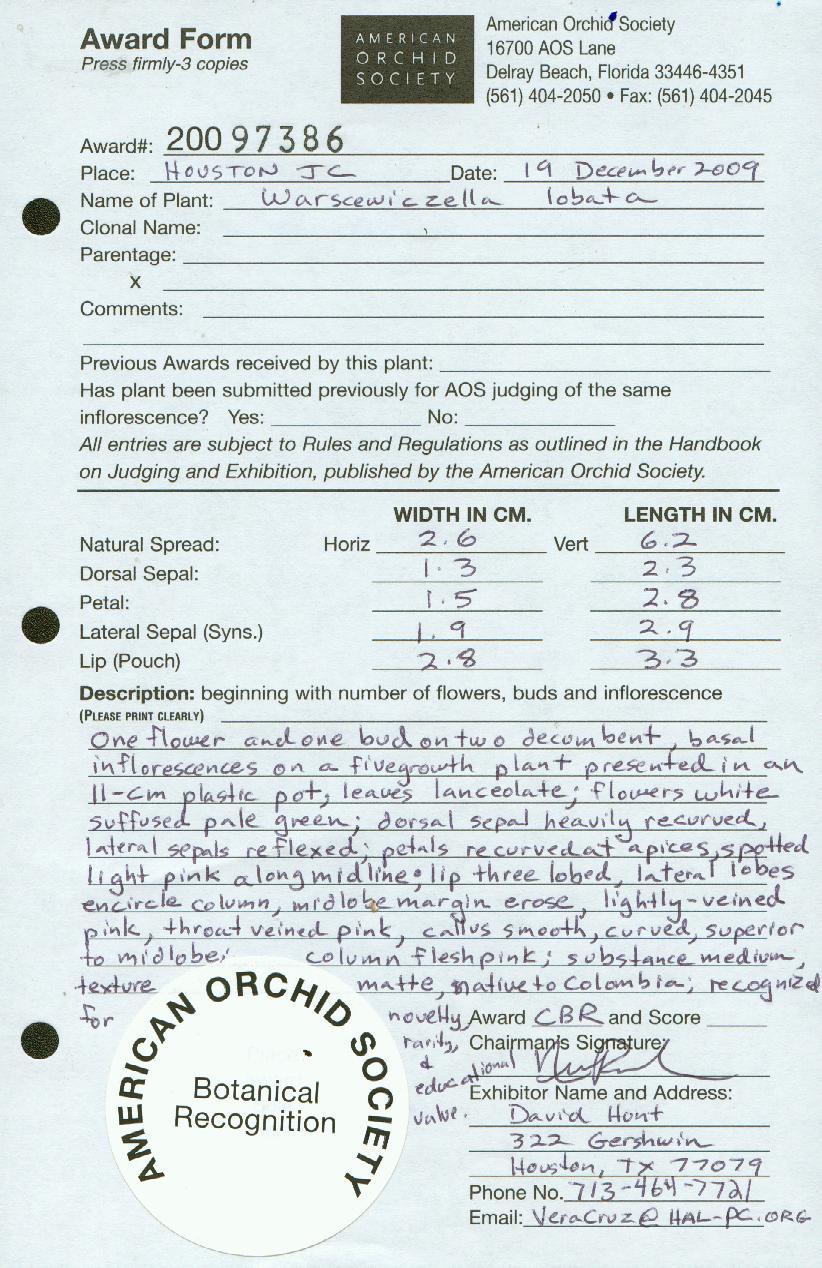 Award Form
Press firmly-3 copies
AMERICAN
ORCHID
SOCIETY
American Orchid Society
16700 AOS Lane
Delray Beach, Florida 33446-4351
(561) 404-2050 • Fax: (561) 404-2045
Award#: 20097386
Place: HOUSTON JC Date: 19 December 2009
Name of Plant: Warscewiczella lobata
Clonal Name:
Parentage:
X
Comments:
Previous Awards received by this plant:
Has plant been submitted previously for AOS judging of the same
inflorescence? Yes: No:
All entries are subject to Rules and Regulations as outlined in the Handbook
on Judging and Exhibition, published by the American Orchid Society.
WIDTH IN CM. LENGTH IN CM.
Natural Spread: Horiz 2.6 Vert 6.2
Dorsal Sepal: 1.3 2.3
Petal: 1.5 2.8
Lateral Sepal (Syns.) 1.9 2.9
Lip (Pouch) 2.8 3.3
Description: beginning with number of flowers, buds and inflorescence
(PLEASE PRINT CLEARLY)
One flower and one bud on two decumbent, basal
inflorescences on a fivegrowth plant presented in an
11-cm plastic pot; leaves lanceolate; flowers white
suffused pale green; dorsal sepal heavily recurved,
lateral sepals reflexed; petals recurved at apices, spotted
light pink along midline; lip three lobed, lateral lobes
encircle column, midlobe margin erose, lightly-veined
pink, throat veined pink, callus smooth, curved, superior
to midlobe; column fleshpink; substance medium,
texture matte, native to Colombia; recognized
for novelty, rarity, & educational value.
Award CBR and Score
Chairman's Signature:
Exhibitor Name and Address:
David Hunt
322 Gershwin
Houston, TX 77079
Phone No. 713-464-7721
Email: VeraCruz@HAL-PC.ORG
AMERICAN ORCHID SOCIETY
Botanical
Recognition